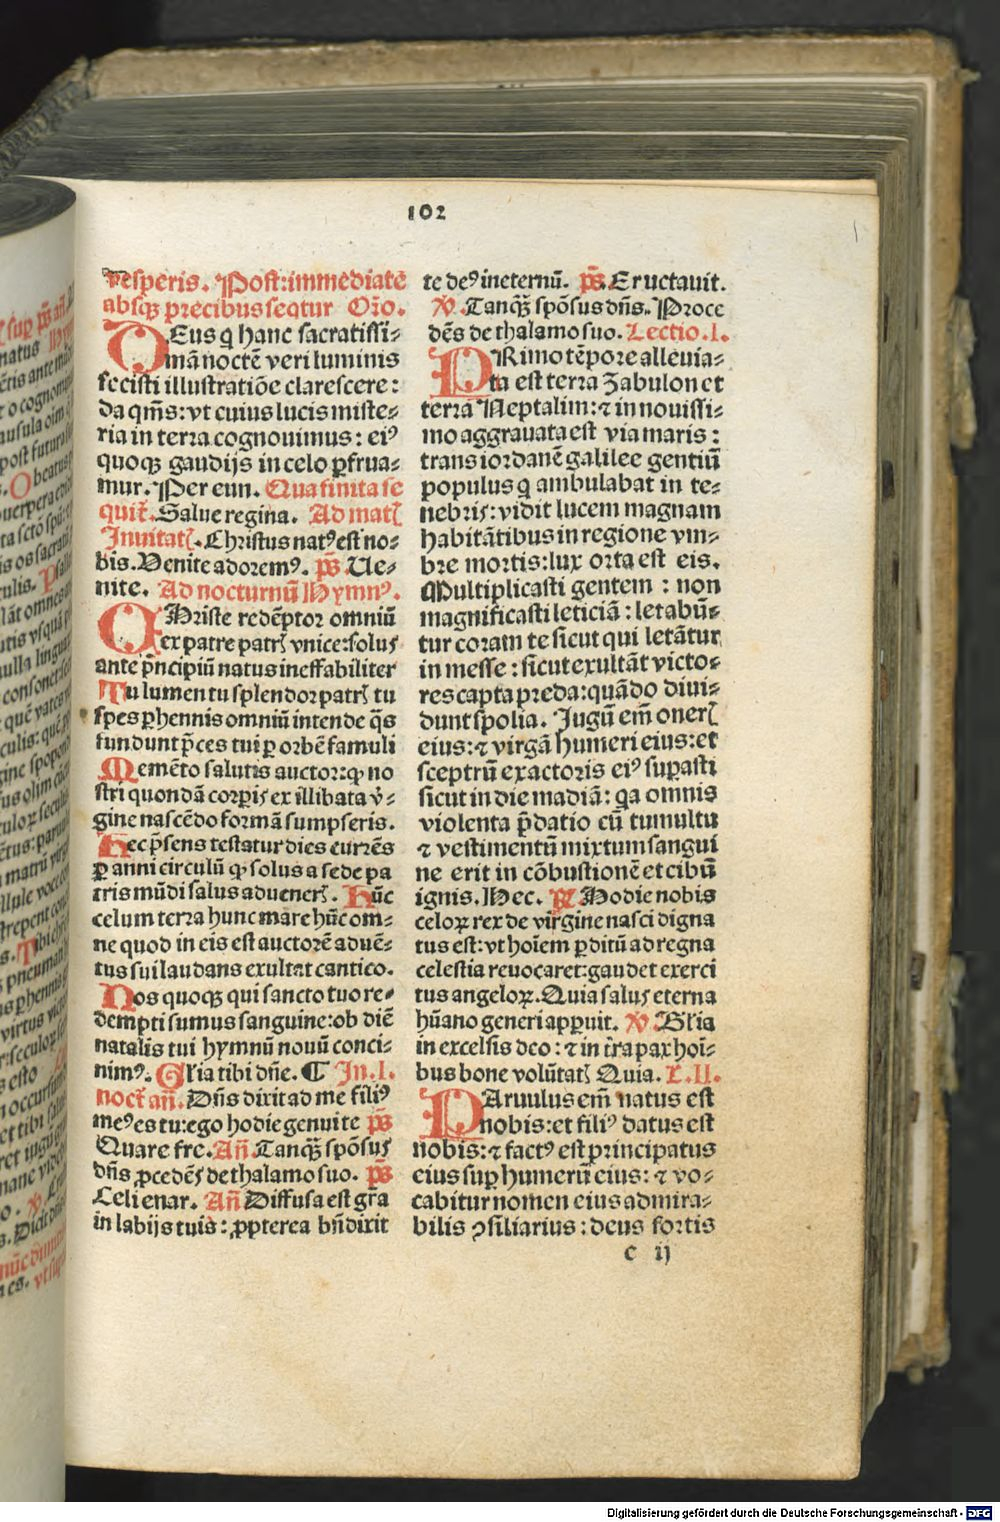 102
vesperis. Post:immediate
absqꝫ precibus seqtur Or̄o.
DEus q hanc sacratissi⸗
mā noctē veri luminis
fecisti illustratiōe clarescere:
da qm̄s: vt cuius lucis miste⸗
ria in terra cognouimus: eiꝰ
quoqꝫ gaudijs in celo ꝑfrua⸗
mur. Per eun. Qua finita se
quit̄. Salue regina. Ad matꝭ
Inuitatꝭ. Christus natꝰ est no⸗
bis. Venite adoremꝰ. p̄s Ue⸗
nite. Ad nocturnū Hymnꝰ.
CHriste redēptor omniū
ex patre patrꝭ vnice: solus
ante p̄ncipiū natus ineffabiliter
Tu lumen tu splendor patrꝭ tu
spes ꝑhennis omniū intende q̄s
fundunt p̄ces tui ꝑ orbē famuli
Memēto salutis auctor: ꝙ no
stri quondā corꝑis ex illibata v̄⸗
gine nascēdo formā sumpseris.
Hec p̄sens testatur dies currēs
ꝑ anni circulū ꝙ solus a sede pa
tris mūdi salus aduenerꝭ. Hūc
celum terra hunc mare hūc om⸗
ne quod in eis est auctorē aduē⸗
tus sui laudans exultat cantico.
Nos quoqꝫ qui sancto tuo re⸗
dempti sumus sanguine: ob diē
natalis tui hymnū nouū conci⸗
nimꝰ. Gl̄ia tibi dn̄e. ¶ In .I.
noct̄ an̄. Dn̄s dixit ad me filiꝰ
meꝰ es tu: ego hodie genui te p̄s
Quare fre. An̄. Tanqꝫ̄ spōsus
dn̄s ꝓcedēs de thalamo suo. p̄s
Celi enar. An̄ Diffusa est gr̄a
in labijs tuis: ꝓpterea bn̄dixit
te deꝰ ineternū. p̄s. Eructauit.
℣. Tanqꝫ̄ spōsus dn̄s. Proce
dēs de thalamo suo. Lectio .I.
PRimo tēpore alleuia⸗
ta est terra Zabulon et
terra Neptalim: ⁊ in nouissi⸗
mo aggrauata est via maris:
trans iordanē galilee gentiū
populus q ambulabat in te⸗
nebris: vidit lucem magnam
habitātibus in regione vm⸗
bre mortis: lux orta est eis.
Multiplicasti gentem: non
magnificasti leticiā: letabū⸗
tur coram te sicut qui letātur
in messe: sicut exultāt victo⸗
res capta preda: quādo diui⸗
dunt spolia. Jugū em̄ onerꝭ
eius: ⁊ virgā humeri eius: et
sceptrū exactoris eiꝰ suꝑasti
sicut in die madiā: qa omnis
violenta p̄datio cū tumultu
⁊ vestimentū mixtum sangui
ne erit in cōbustionē et cibū
ignis. Hec. ℟ Hodie nobis
celoꝝ rex de virgine nasci digna
tus est: vt hoīem ꝑditū ad regna
celestia reuocaret: gaudet exerci
tus angeloꝝ. Quia salus eterna
hūano generi apꝑuit. ℣ Gl̄ia
in excelsis deo: ⁊ in t̄ra pax hoī⸗
bus bone volūtatꝭ Quia. L. II.
PAruulus em̄ natus est
nobis: et filiꝰ datus est
nobis: ⁊ factꝰ est principatus
eius suꝑ humerū eius: ⁊ vo⸗
cabitur nomen eius admira⸗
bilis ꝯsiliarius: deus fortis
c ij
Digitalisierung gefördert durch die Deutsche Forschungsgemeinschaft - DFG